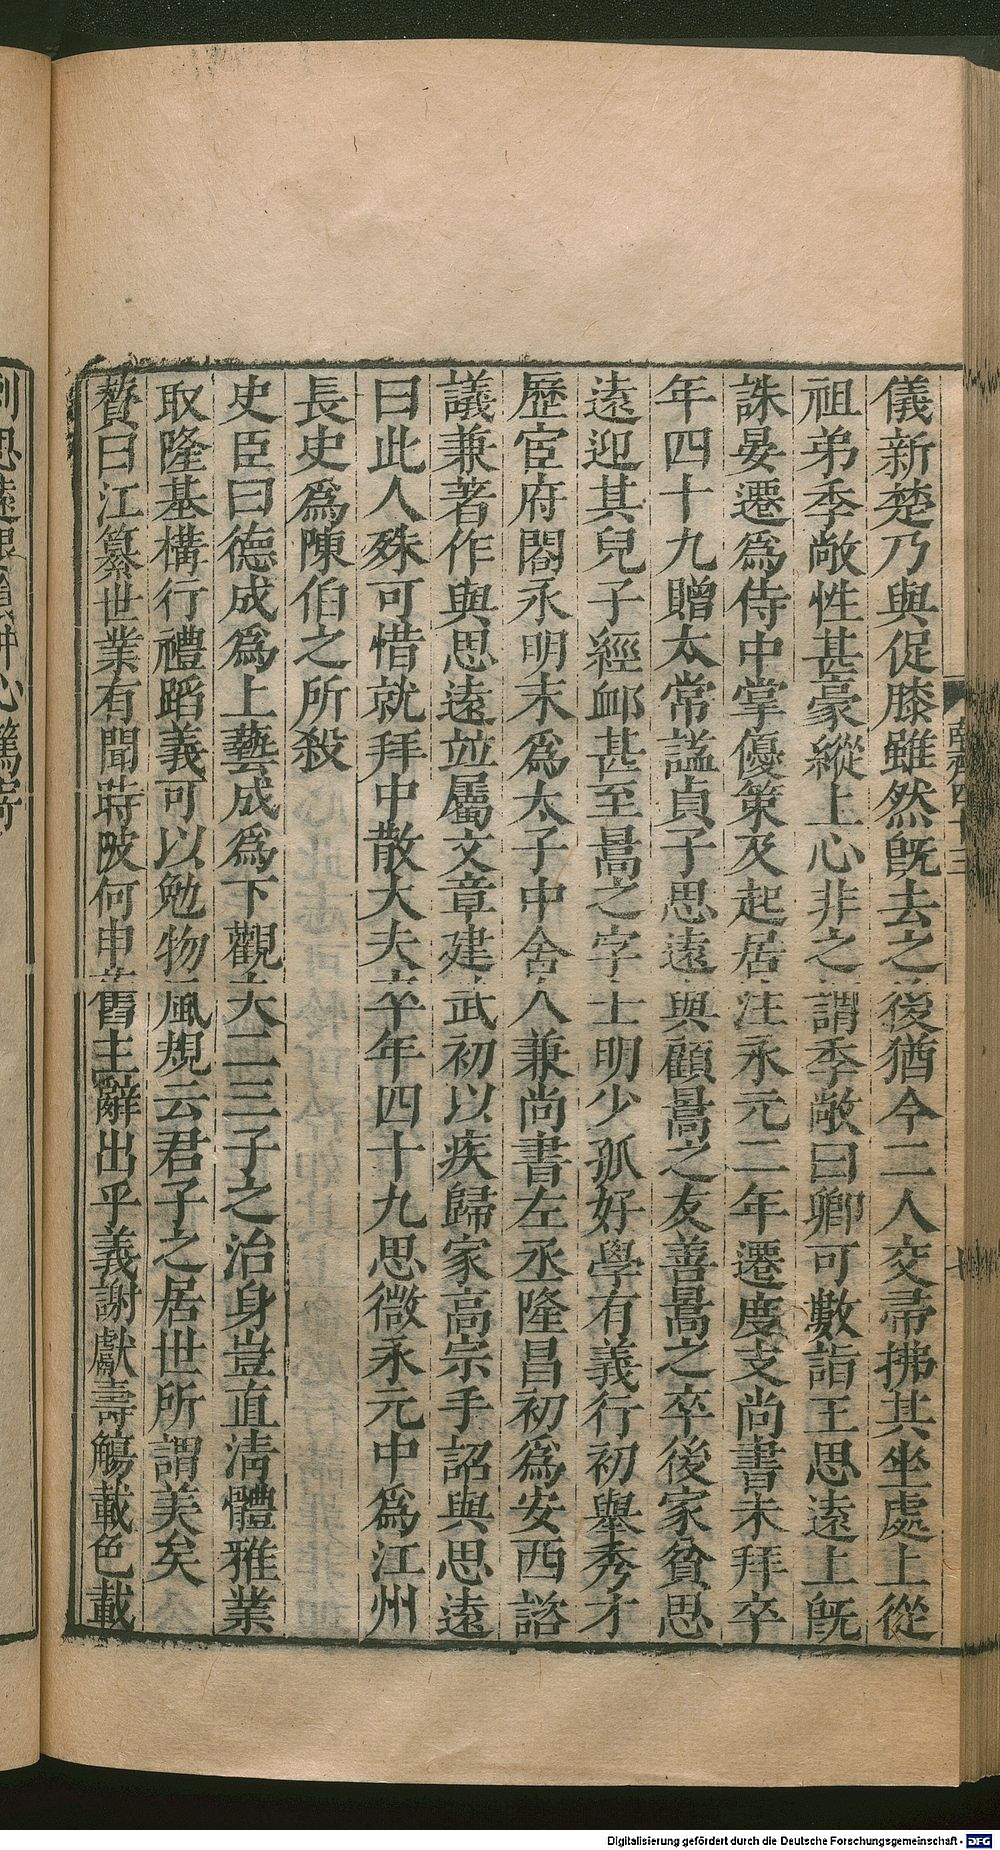 儀新楚乃與促膝雖然既去之後猶令二人交帚拂其坐處上從
祖弟季敞性甚豪縱上心非之謂季敞曰卿可數詣王思遠上既
誅晏遷爲侍中掌優策及起居注永元二年遷度支尚書未拜卒
年四十九贈太常謚貞子思遠與顧暠之友善暠之卒後家貧思
遠迎其兒子經䘏甚至暠之字士明少孤好學有義行初舉秀才
歷宦府閣永明末爲太子中舍人兼尚書左丞隆昌初爲安西諮
議兼著作與思遠並屬文章建武初以疾歸家高宗手詔與思遠
曰此人殊可惜就拜中散大夫卒年四十九思微永元中爲江州
長史爲陳伯之所殺
史臣曰德成爲上藝成爲下觀夫二三子之治身豈直清體雅業
取隆基構行禮蹈義可以勉物風規云君子之居世所謂美矣
贊曰江纂世業有聞時陂何申舊主辭出乎義謝獻壽觴載色載
刺思遠退食沖心篤寄
南齊四十三
七
Digitalisierung gefördert durch die Deutsche Forschungsgemeinschaft - DFG